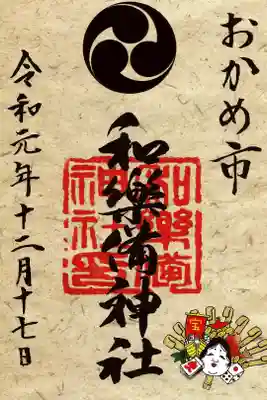 おかめ市
和樂備神社
和樂備
神社璽
令和元年十二月十七日
宝